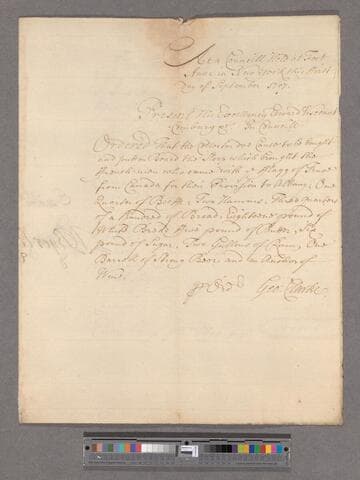 At a Councill Held at Fort
Anne in New York this first
Day of September 1707.
Present His Excellency Edward Viscount
Cornbury &c In Councill
Ordered That the be bought
and putt on board the Sloop which brought the
French men who came with a flagg of Truce
from Canada for their Provision to Albany, One
Quarter of Beefe, Two Hammes, Three quarters
of a Hundred of Bread, Eighteene pound of
White Bread, five pound of Butter, Six
pound of Sugar, Two Gallons of Rum, One
Barrell of Strong Beer and an Anchor of
Wine.
Geo: Clarke